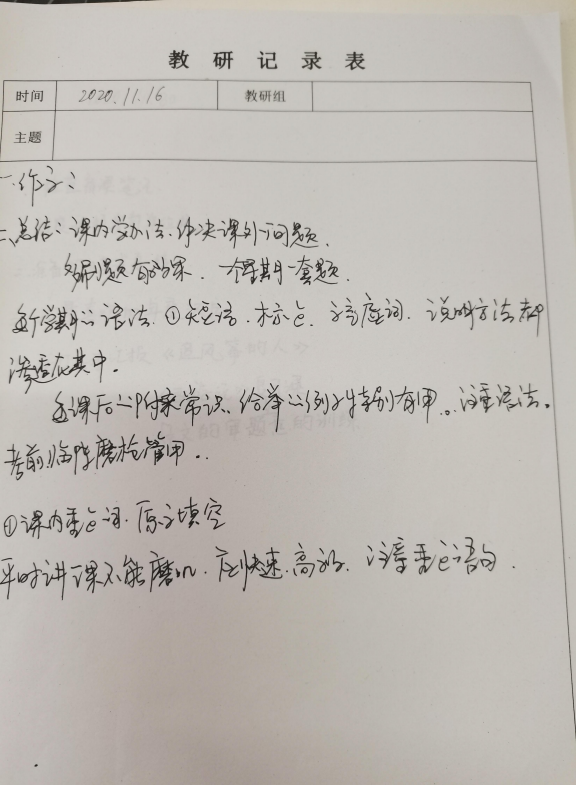 教研记录表
时间 2020.11.16 教研组
主题
一.作文：
二.总结：课内学办法.解决课外问题.
多刷题有效果.一个星期一套题.
每个学期的语法.①短语.标点.文言虚词.说明方法都
渗透在其中.
每课后的附录常识.给举的例子特别有用。注重语法。
考前临阵磨枪管用。.
①课内重点词.原文填空
平时讲课不能磨叽.应快速.高效.注意重点语句.